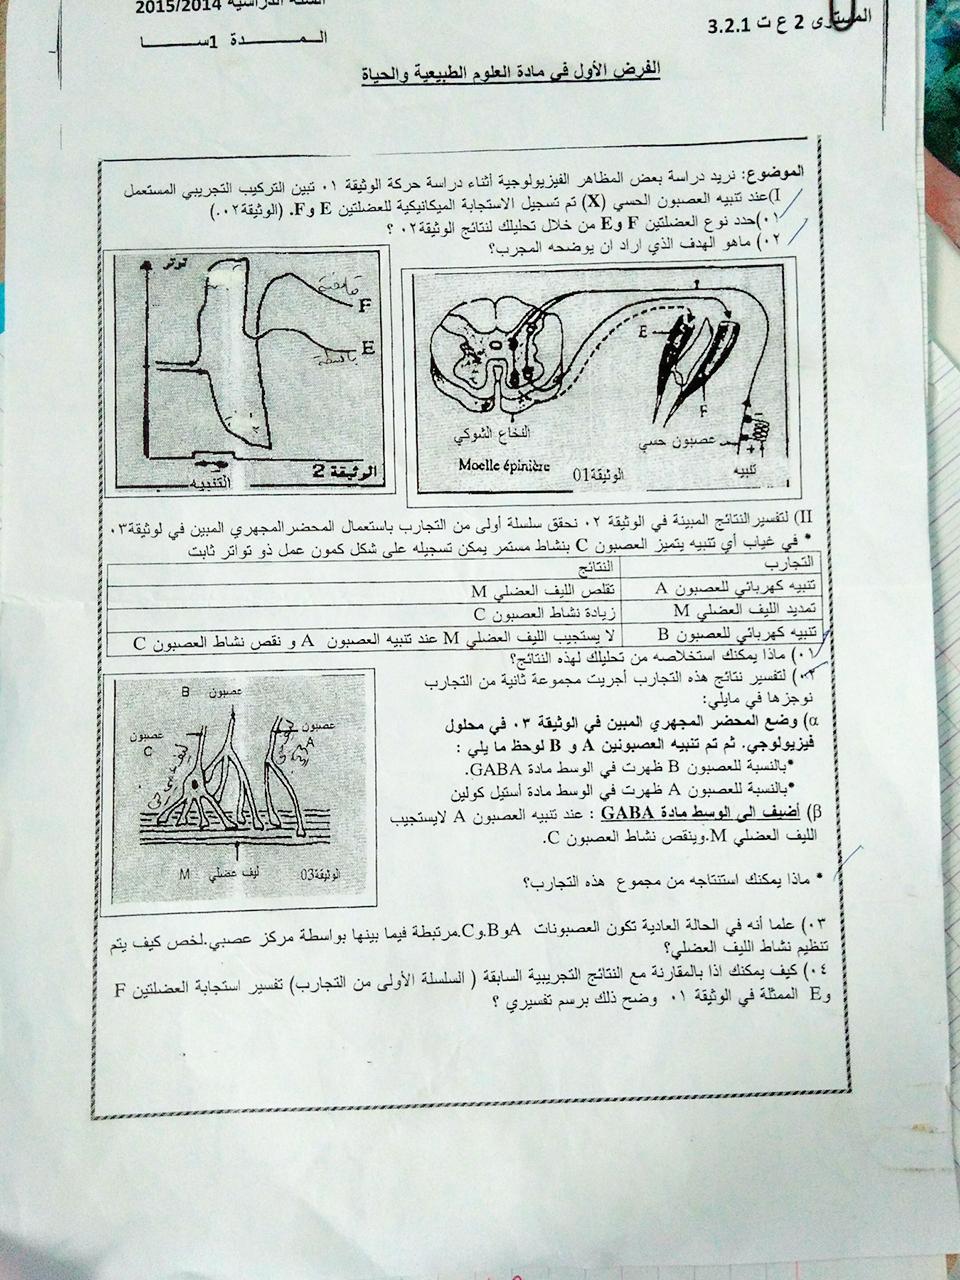 المستوى 2 ع ت 3.2.1
السنة الدراسية 2015/2014
المـــــدة 1ســـــا
الفرض الأول في مادة العلوم الطبيعية والحياة
الموضوع: نريد دراسة بعض المظاهر الفيزيولوجية أثناء دراسة حركة الوثيقة ٠١ تبين التركيب التجريبي المستعمل
I)عند تنبيه العصبون الحسي (X) تم تسجيل الاستجابة الميكانيكية للعضلتين E وF. (الوثيقة٠٢.)
٠١)حدد نوع العضلتين F وE من خلال تحليلك لنتائج الوثيقة٠٢ ؟
٠٢) ماهو الهدف الذي اراد ان يوضحه المجرب؟
توتر
قابضة
F
E
باسطة
الوثيقة 2
التنبيه
E
F
النخاع الشوكي
Moelle épinière
عصبون حسي
تنبيه
الوثيقة01
II) لتفسيرالنتائج المبينة في الوثيقة ٠٢ نحقق سلسلة أولى من التجارب باستعمال المحضرالمجهري المبين في لوثيقة٠٣
* في غياب أي تنبيه يتميز العصبون C بنشاط مستمر يمكن تسجيله على شكل كمون عمل ذو تواتر ثابت
التجارب النتائج
تنبيه كهربائي للعصبون A تقلص الليف العضلي M
تمديد الليف العضلي M زيادة نشاط العصبون C
تنبيه كهربائي للعصبون B لا يستجيب الليف العضلي M عند تنبيه العصبون A و نقص نشاط العصبون C
٠١) ماذا يمكنك استخلاصه من تحليلك لهذه النتائج؟
٠٢) لتفسير نتائج هذه التجارب أجريت مجموعة ثانية من التجارب
نوجزها في مايلي:
α) وضع المحضر المجهري المبين في الوثيقة ٠٣ في محلول
فيزيولوجي. ثم تم تنبيه العصبونين A و B لوحظ ما يلي :
•بالنسبة للعصبون B ظهرت في الوسط مادة GABA.
•بالنسبة للعصبون A ظهرت في الوسط مادة أستيل كولين
β) أضيف الى الوسط مادة GABA : عند تنبيه العصبون A لايستجيب
الليف العضلي M.وينقص نشاط العصبون C.
* ماذا يمكنك استنتاجه من مجموع هذه التجارب؟
عصبون B
عصبون A
عصبون C
ليف عضلي M
الوثيقة03
٠٣) علما أنه في الحالة العادية تكون العصبونات AوBوC.مرتبطة فيما بينها بواسطة مركز عصبي.لخص كيف يتم
تنظيم نشاط الليف العضلي؟
٠٤) كيف يمكنك اذا بالمقارنة مع النتائج التجريبية السابقة ( السلسلة الأولى من التجارب) تفسير استجابة العضلتين F
وE الممثلة في الوثيقة ٠١ وضح ذلك برسم تفسيري ؟